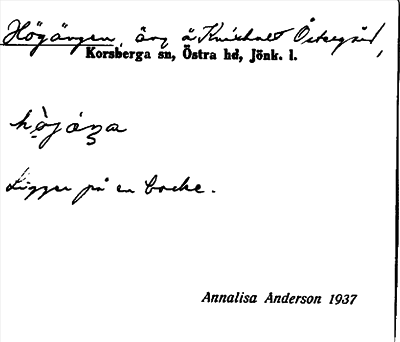 Högängen, äng å Knishult Östergård,
Korsberga sn, Östra hd, Jönk. l.
Ligger på en backe.
Annalisa Anderson 1937